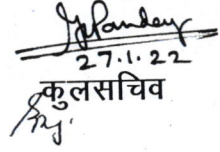 GPandey
27.1.22
कुलसचिव